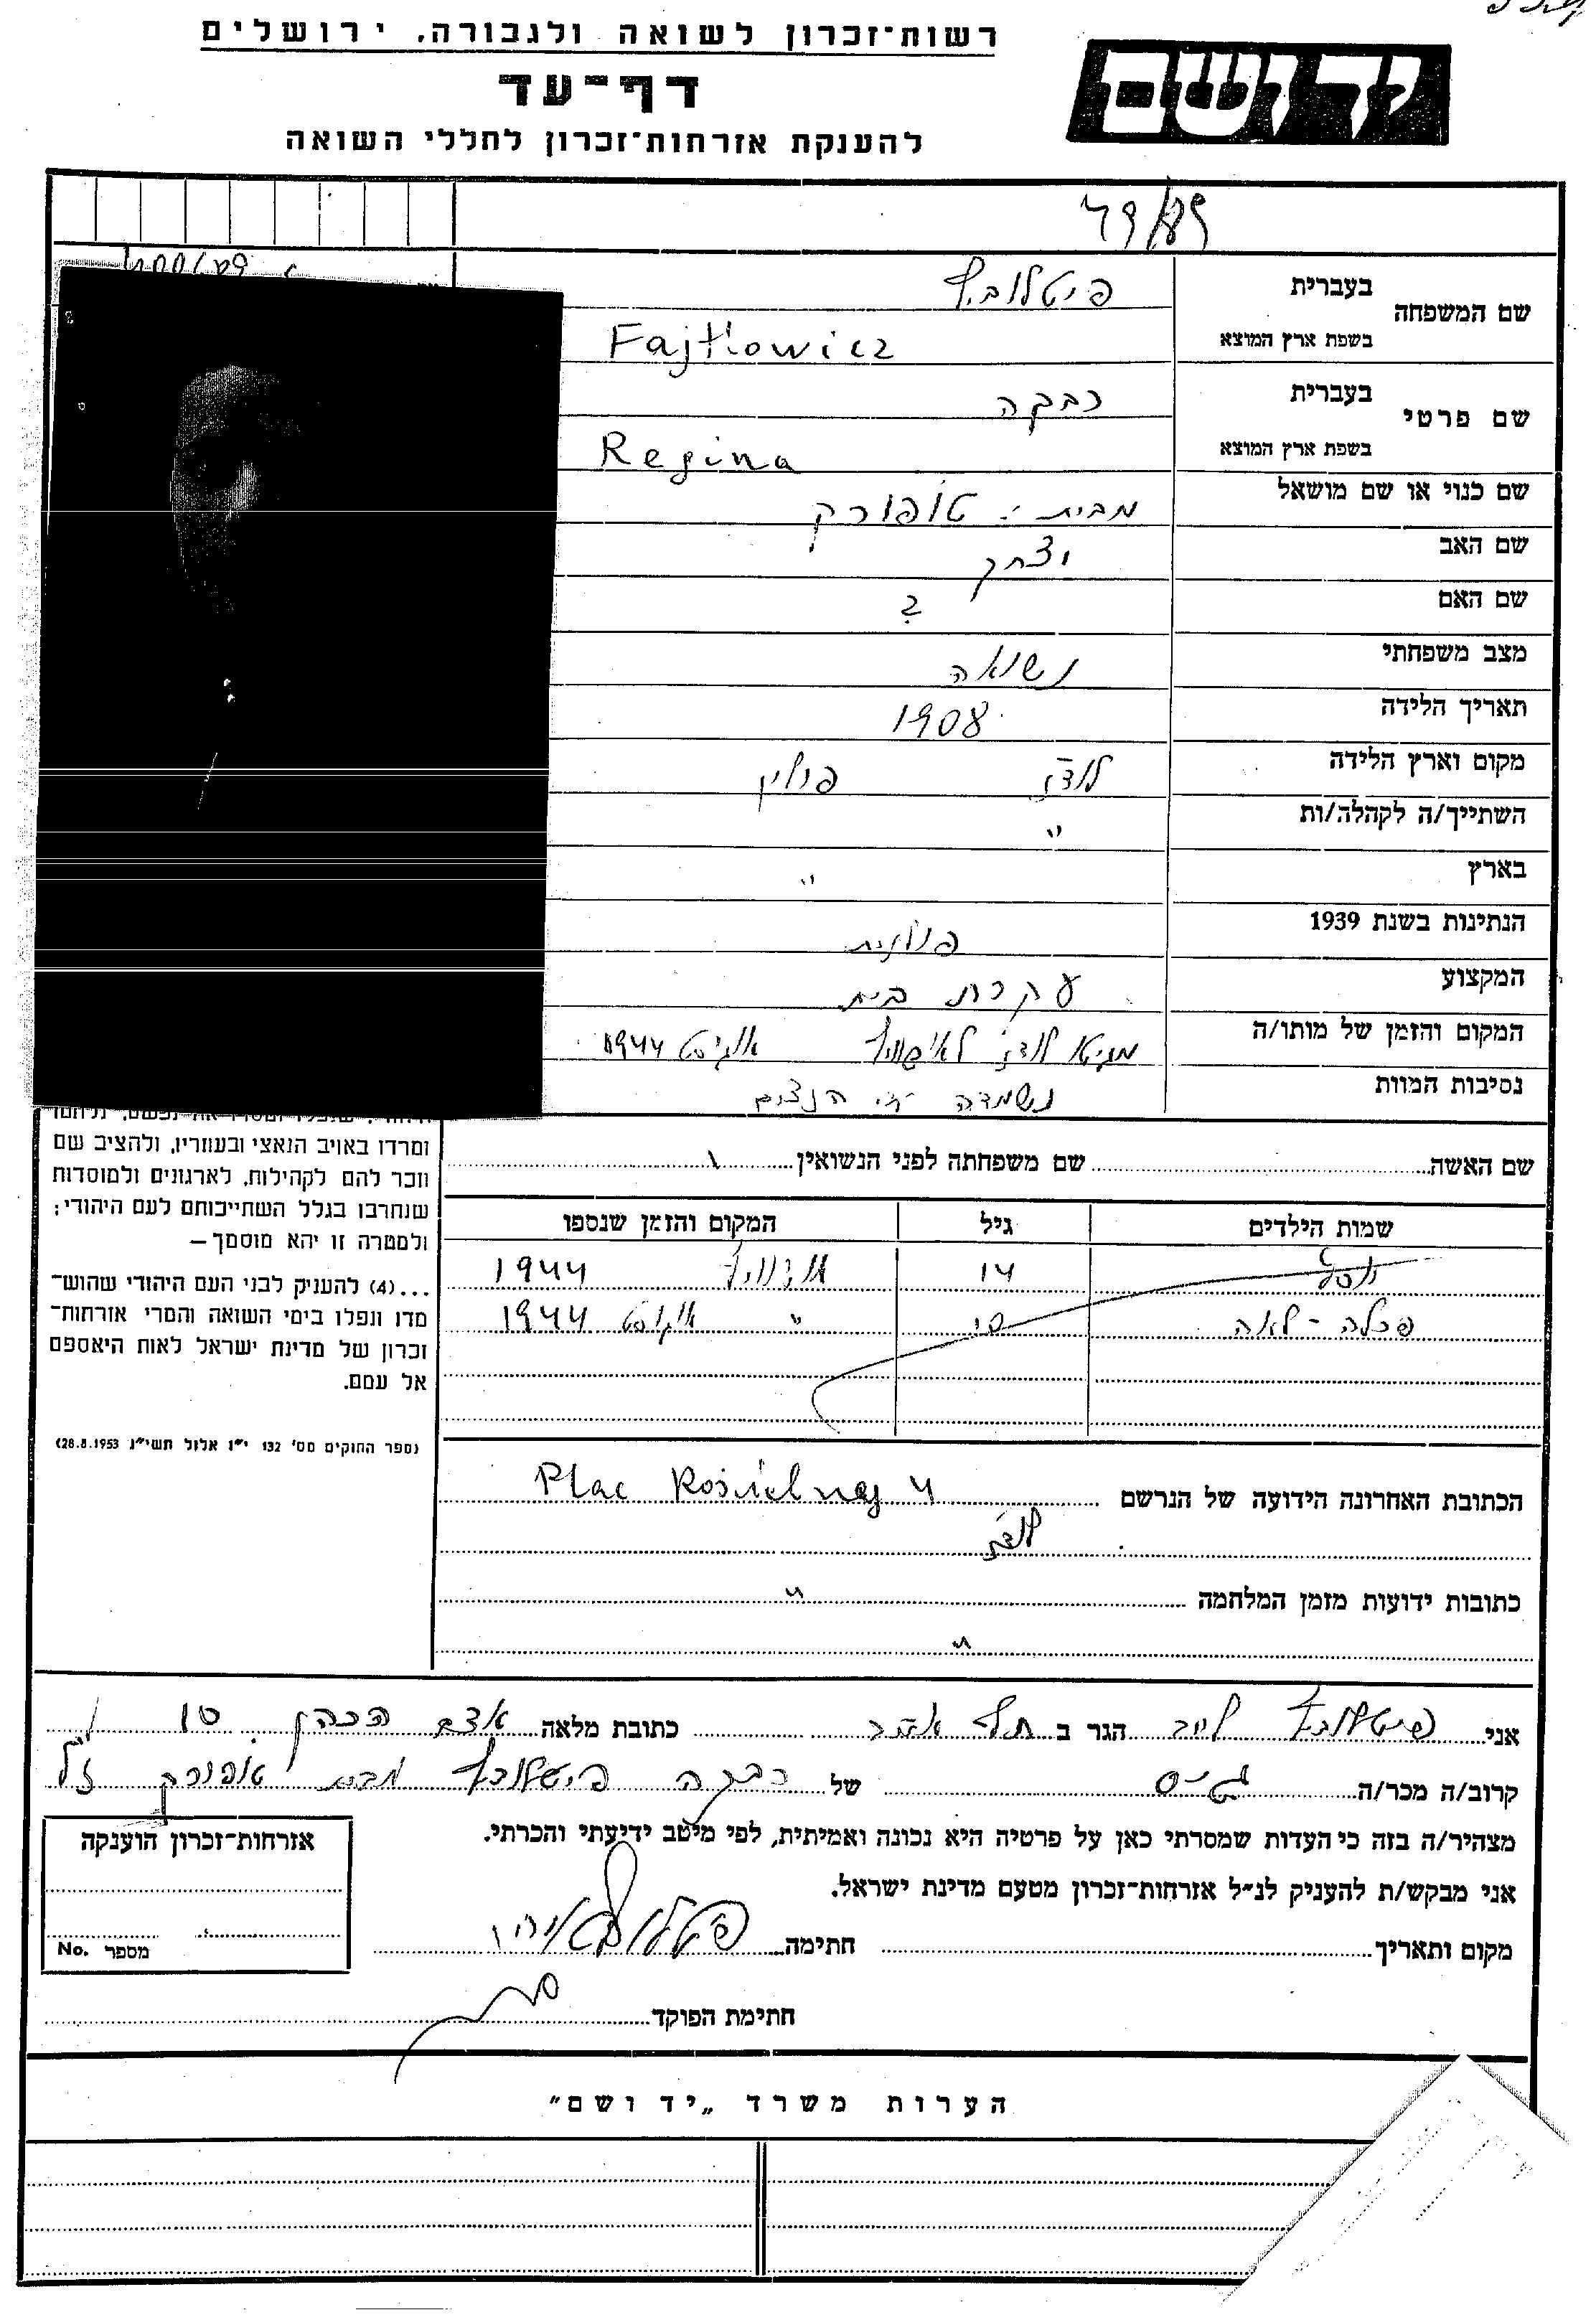 רשות־זכרון לשואה ולגבורה. ירושלים
דף־עד
להענקת אזרחות־זכרון לחללי השואה
יד ושם
79/89
שם המשפחה
בעברית
פיטלוביץ
בשפת ארץ המוצא
Fajtłowicz
שם פרטי
בעברית
רבקה
בשפת ארץ המוצא
Regina
שם כנוי או שם מושאל
מבית: טופורק
שם האב
יצחק
שם האם
?
מצב משפחתי
נשואה
תאריך הלידה
1908
מקום וארץ הלידה
לודז פולין
השתייך/ה לקהלה/ות
"
בארץ
"
הנתינות בשנת 1939
פולנית
המקצוע
עקרת בית
המקום והזמן של מותו/ה
מגיטו לודז לאושוויץ אוגוסט 1944
נסיבות המוות
נשמדה ע"י הנצים
ומרדו באויב הנאצי ובעוזריו, ולהציב שם
וזכר להם לקהילות, לארגונים ולמוסדות
שנחרבו בגלל השתייכותם לעם היהודי;
ולמטרה זו יהא מוסמך—
...(4) להעניק לבני העם היהודי שהוש־
מדו ונפלו בימי השואה והמרי אזרחות־
זכרון של מדינת ישראל לאות היאספם
אל עמם.
(ספר החוקים מס' 132 י״ז אלול תשי״ג 28.8.1953)
שם האשה שם משפחתה לפני הנשואין
שמות הילדים גיל המקום והזמן שנספו
יוסף 14 אושוויץ 1944
פרלה - לאה 10 " אוגוסט 1944
הכתובת האחרונה הידועה של הנרשם Plac Kościelnej 4
לודז
כתובות ידועות מזמן המלחמה "
"
אני פיטלוביץ ליוב הגר ב תל-אביב כתובת מלאה אדם הכהן 10
קרוב/ה מכר/ה גיס של רבקה פיטלוביץ מבית טופורק ז"ל
מצהיר/ה בזה כי העדות שמסרתי כאן על פרטיה היא נכונה ואמיתית, לפי מיטב ידיעתי והכרתי.
אני מבקש/ת להעניק לנ״ל אזרחות־זכרון מטעם מדינת ישראל.
מקום ותאריך חתימה
חתימת הפוקד
אזרחות־זכרון הוענקה
מספר No.
הערות משרד „יד ושם״